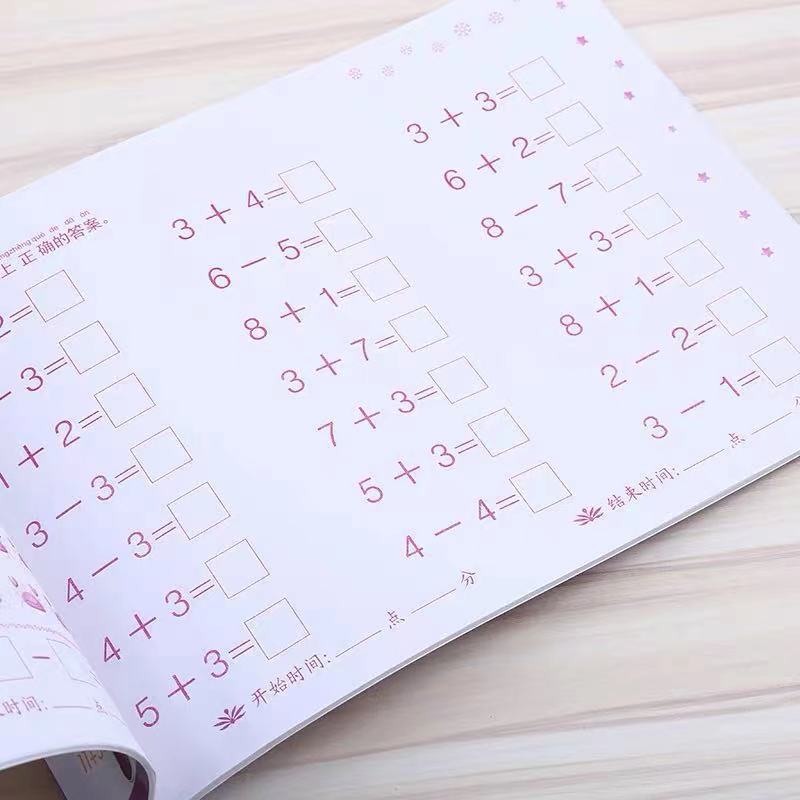 上正确的答案。
2=
- 3=
1 + 2=
3 - 3=
4 - 3=
4 + 3=
5 + 3=
3 + 4=
6 - 5=
8 + 1=
3 + 7=
7 + 3=
5 + 3=
4 - 4=
3 + 3=
6 + 2=
8 - 7=
3 + 3=
8 + 1=
2 - 2=
3 - 1=
开始时间:____点____分
结束时间:____点____分
时间:____点